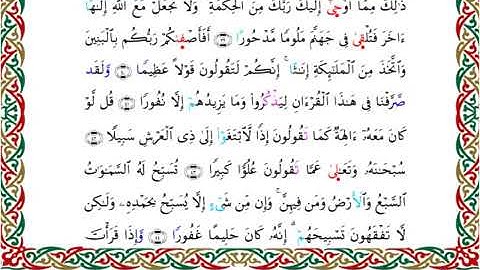 ذَٰلِكَ مِمَّا أَوْحَىٰ إِلَيْكَ رَبُّكَ مِنَ الْحِكْمَةِ ۗ وَلَا تَجْعَلْ مَعَ اللَّهِ إِلَٰهًا
ءَاخَرَ فَتُلْقَىٰ فِى جَهَنَّمَ مَلُومًا مَّدْحُورًا ۝٣٩ أَفَأَصْفَىٰكُمْ رَبُّكُم بِالْبَنِينَ
وَاتَّخَذَ مِنَ الْمَلَٰٓئِكَةِ إِنَٰثًا ۚ إِنَّكُمْ لَتَقُولُونَ قَوْلًا عَظِيمًا ۝٤٠ وَلَقَدْ
صَرَّفْنَا فِى هَٰذَا الْقُرْءَانِ لِيَذَّكَّرُوا وَمَا يَزِيدُهُمْ إِلَّا نُفُورًا ۝٤١ قُل لَّوْ
كَانَ مَعَهُۥٓ ءَالِهَةٌ كَمَا تَقُولُونَ إِذًا لَّابْتَغَوْا إِلَىٰ ذِى الْعَرْشِ سَبِيلًا ۝٤٢
سُبْحَٰنَهُۥ وَتَعَٰلَىٰ عَمَّا تَقُولُونَ عُلُوًّا كَبِيرًا ۝٤٣ تُسَبِّحُ لَهُ السَّمَٰوَٰتُ
السَّبْعُ وَالْأَرْضُ وَمَن فِيهِنَّ ۚ وَإِن مِّن شَىْءٍ إِلَّا يُسَبِّحُ بِحَمْدِهِۦ وَلَٰكِن
لَّا تَفْقَهُونَ تَسْبِيحَهُمْ ۗ إِنَّهُۥ كَانَ حَلِيمًا غَفُورًا ۝٤٤ وَإِذَا قَرَأْتَ